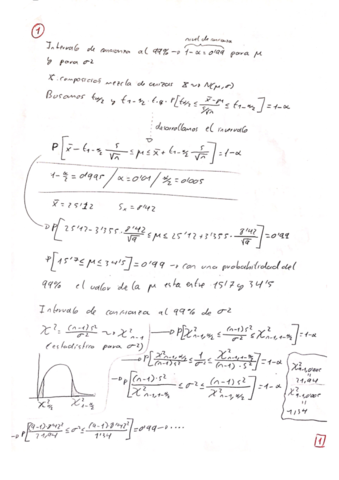 1
nivel de confianza
Intervalo de confianza al 99% → 1-α = 0'99 para μ
y para σ²
X: composición mezcla de cenizas X ~ N(μ,σ)
Buscamos t_{α/2} y t_{1-α/2} t.q. P[t_{α/2} ≤ (x̄-μ)/(s/√n) ≤ t_{1-α/2}] = 1-α
desarrollamos el intervalo
P[x̄ - t_{1-α/2} s/√n ≤ μ ≤ x̄ + t_{1-α/2} s/√n] = 1-α
1-α/2 = 0'995 / α = 0'01 / α/2 = 0'005
x̄ = 25'12 S = 8'42
→ P[25'12 - 3'355 · 8'42/√9 ≤ μ ≤ 25'12 + 3'355 · 8'42/√9] = 0'99
P[15'7 ≤ μ ≤ 34'5] = 0'99 → con una probabilidad del
99% el valor de la μ esta entre 15'7 y 34'5
Intervalo de confianza al 99% de σ²
χ² = (n-1)s²/σ² ~ χ²_{n-1} → P[χ²_{n-1,α/2} ≤ (n-1)s²/σ² ≤ χ²_{n-1,1-α/2}] = 1-α
(estadístico para σ²)
→ P[χ²_{n-1,α/2}/(n-1)s² ≤ 1/σ² ≤ χ²_{n-1,1-α/2}/(n-1)·s²] = 1-α
→ P[(n-1)·s²/χ²_{n-1,1-α/2} ≤ σ² ≤ (n-1)s²/χ²_{n-1,α/2}] = 1-α
21,94
1,34
χ²_{α/2} χ²_{1-α/2}
= 0'99 → ....
1